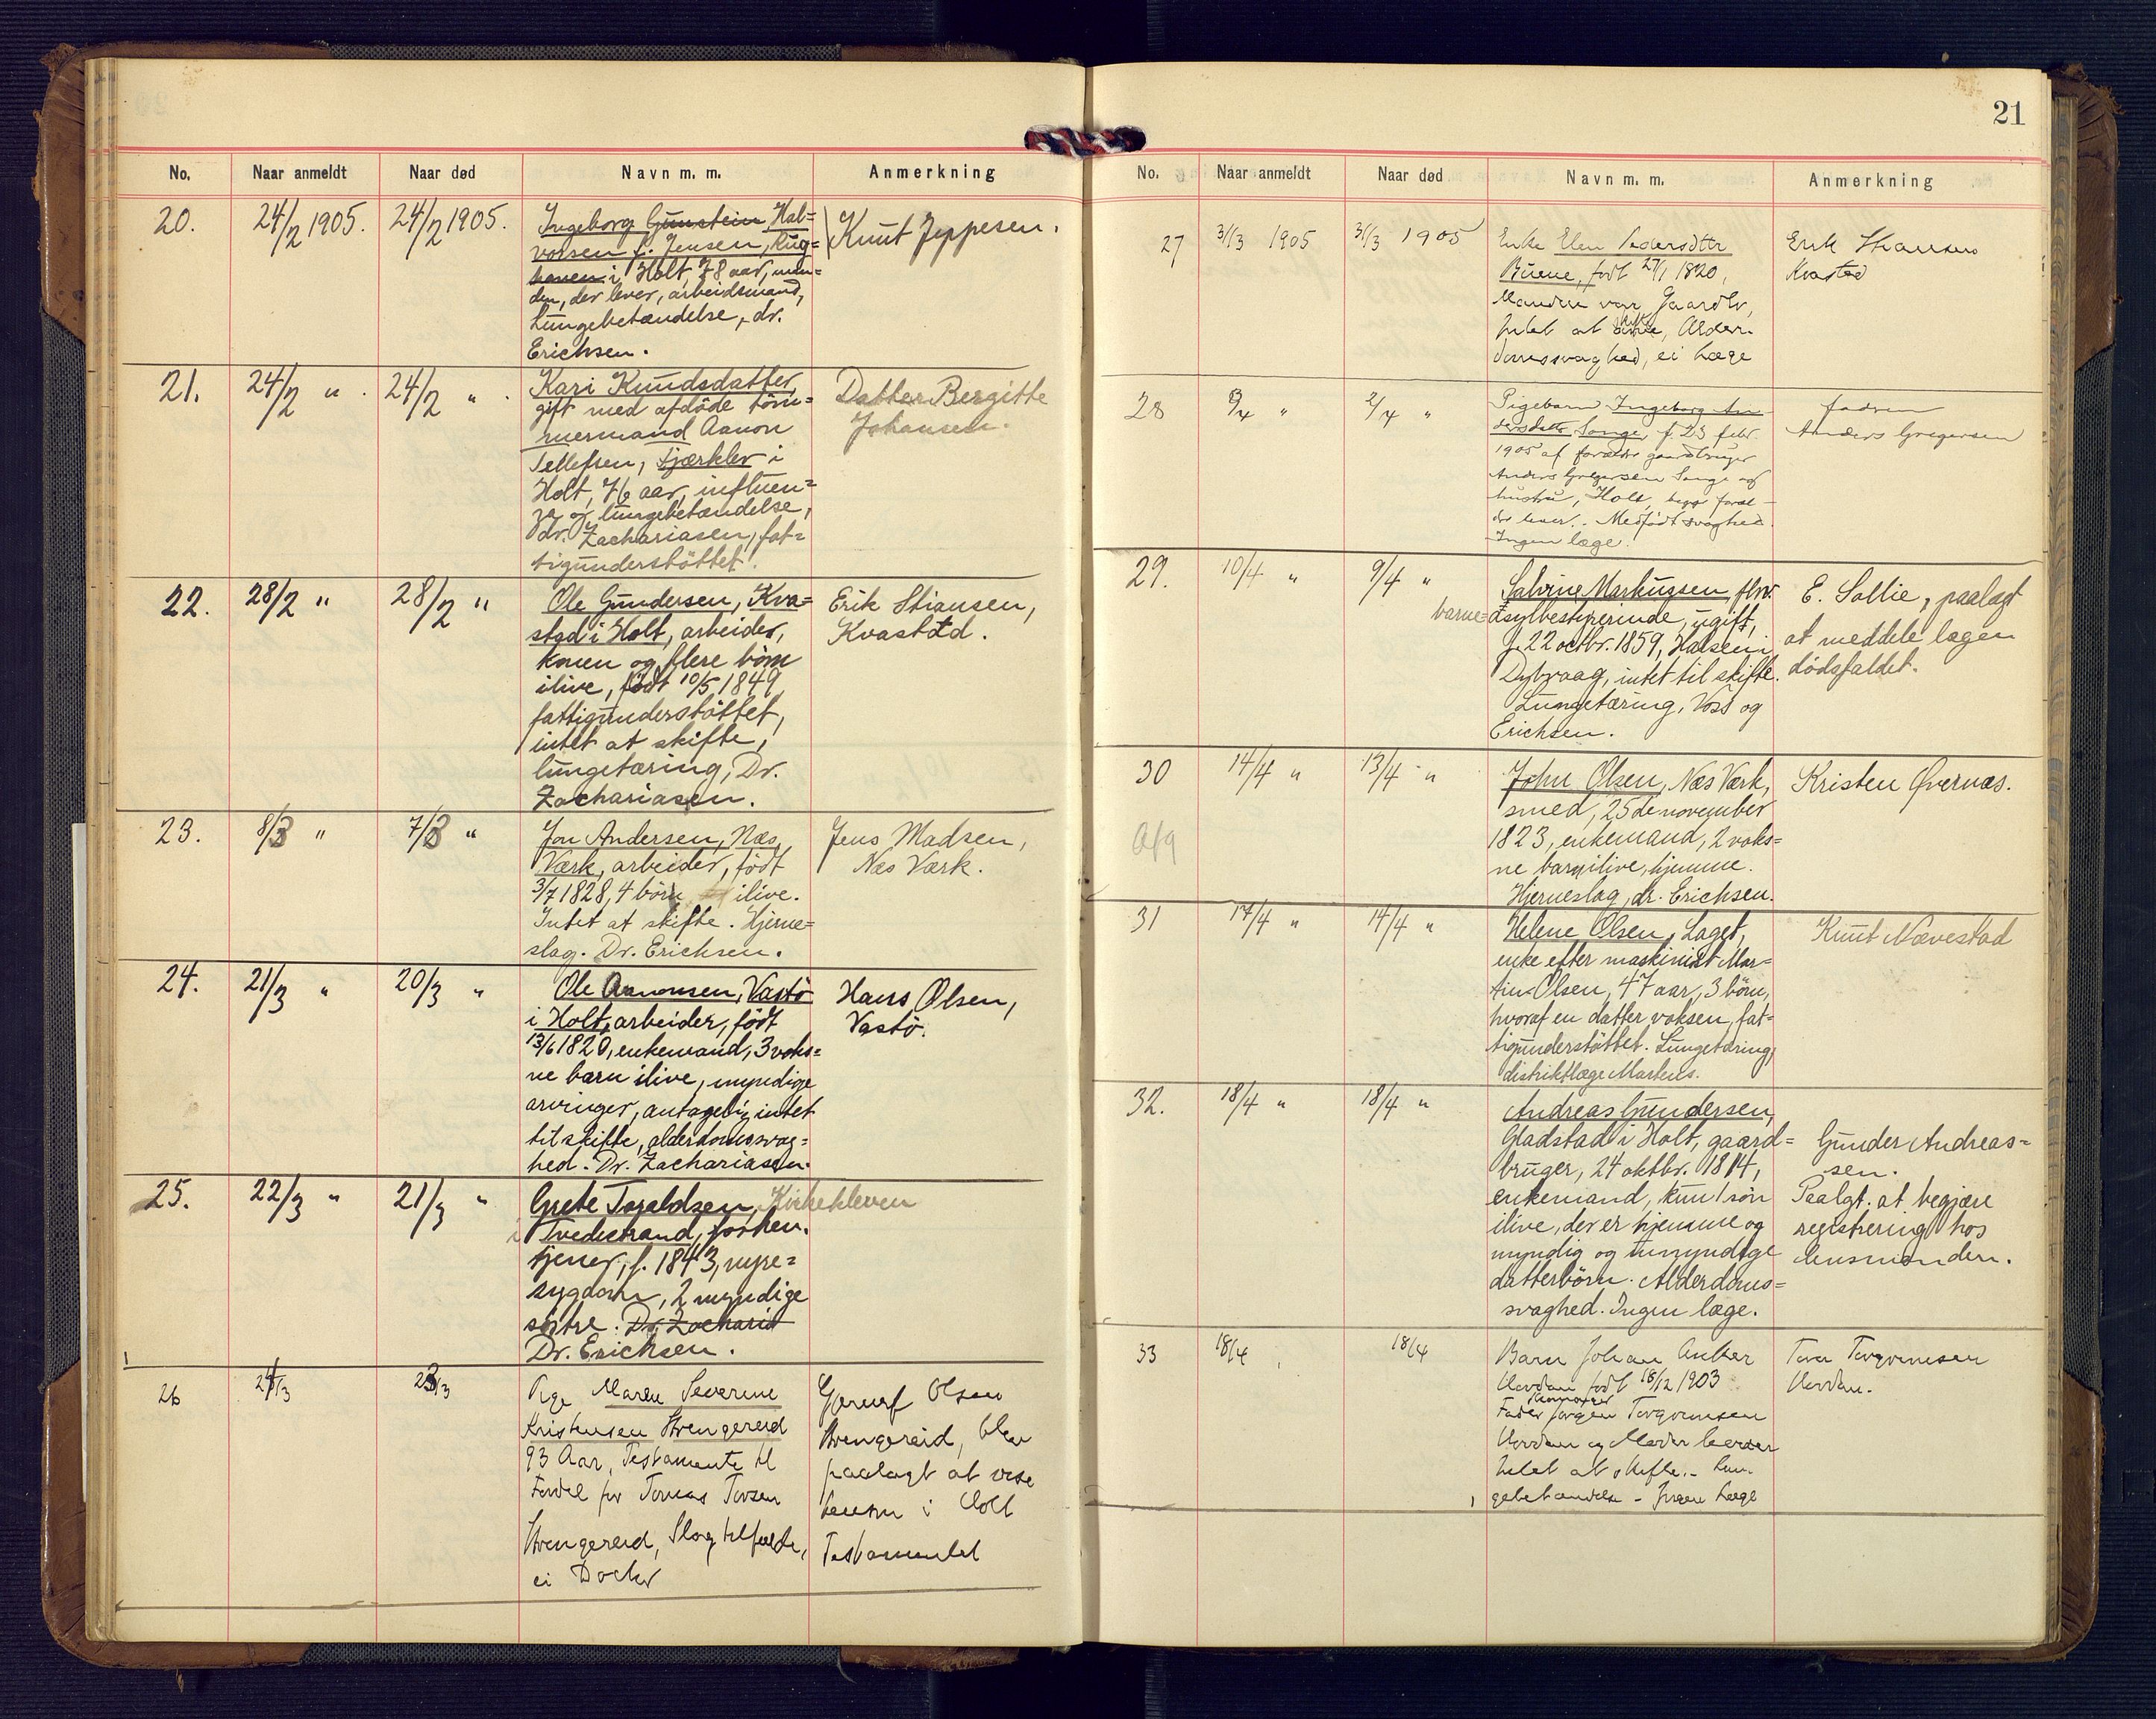 No. Naar anmeldt Naar død Navn m. m. Anmerkning
20. 24/2 1905. 24/2 1905. Ingeborg Gunstein Hal= Knut Jeppesen.
vorsen f. Jensen, Rug=
haven i Holt, 78 aar, man=
den, der lever, arbeidsmand,
Lungebetændelse, dr.
Erichsen.
21. 24/2 " 24/2 " Kari Knudsdatter, Datter Bergitte
gift med afdöde töm= Johansen.
mermand Aanon
Tellefsen, Fjærkler i
Holt, 76 aar, influen=
za og lungebetændelse,
dr. Zachariasen, fat=
tigunderstöttet.
22. 28/2 " 28/2 " Ole Gundersen, Kva= Erik Stiansen,
stad i Holt, arbeider, Kvastad.
konen og flere börn
ilive, födt 10/5 1849,
fattigunderstöttet,
intet at skifte,
lungetæring, Dr.
Zachariasen.
23. 8/3 " 7/3 " Jon Andersen, Næs Jens Madsen,
Værk, arbeider, födt Næs Værk.
3/7 1828, 4 börn ilive.
Intet at skifte. Hjerne=
slag. Dr. Erichsen.
24. 21/3 " 20/3 " Ole Aanonsen, Vastö Hans Olsen,
i Holt, arbeider, födt Vastö.
13/6 1820, enkemand, 3 voks=
ne barn ilive, myndige
arvinger, antagelig intet
til skifte, alderdomssvag=
hed. Dr. Zachariasen.
25. 22/3 " 21/3 " Grete Torjeldsen, Kirkekleven
i Tvedestrand, forhen.
tjener, f. 1843, nyre=
sygdom, 2 myndige
söstre. Dr. Zacharia
Dr. Erichsen.
26 24/3 23/3 Pige Maren Severine Olsen
Kristensen Strengereid Strengereid, blev
93 Aar, Testamente til paalagt at vise
Fordel for Tomas Torsen lensm i Holt
Strengereid, Slagtilfælde, Testamentet
ei Doctor
21
No. Naar anmeldt Naar død Navn m. m. Anmerkning
27 31/3 1905 31/3 1905 Enke Elen Pedersdttr Erik Stiansen
Buene, født 27/1 1820, Kvastad
Manden var Gaardbr,
Intet at skifte, Alder.
domssvaghed, ei Læge
28 3/4 " 2/4 " Pigebarn Ingeborg An- fadren
dersdatter Songe, f. 23 febr. Anders Gregersen
1905 af forældre gaardbruger
Anders Gregersen Songe og
hustru, Holt, begge foræl-
dre lever. Medfødt svaghed.
Ingen læge.
29. 10/4 " 9/4 " Salvine Markussen, fhv. E. Sollie, paalagt
barne=asylbestyrerinde, ugift, at meddele lægen
f. 22 octbr. 1859, Halsen i dödsfaldet.
Dybvaag, intet til skifte.
Lungetæring, Voss og
Erichsen.
30 14/4 " 13/4 " John Olsen, Næs Værk, Kristen Øvernæs.
smed, 25de november
Afg 1823, enkemand, 2 voks=
ne barn ilive, hjemme.
Hjerneslag, dr. Erichsen.
31 17/4 " 14/4 " Helene Olsen, Laget, Knut Nævestad
enke efter maskinist Mar=
tin Olsen, 47 aar, 3 börn,
hvoraf en datter voksen, fat=
tigunderstöttet. Lungetæring,
distriktlæge Martens.
32. 18/4 " 18/4 " Andreas Gundersen,
Gladstad i Holt, gaard= Gunder Andreas=
bruger, 24 oktbr. 1814, sen.
enkemand, kun 1 sön Paalgt. at begjære
ilive, der er hjemme og registrering hos
myndig og umyndige lensmanden.
datterbörn. Alderdoms=
svaghed. Ingen læge.
33 18/4 18/4 Barn Johan Anker
født 18/12 1903
Fader Jørgen
og Moder lever
Intet at skifte. Lun-
gebetændelse - Ingen Læge